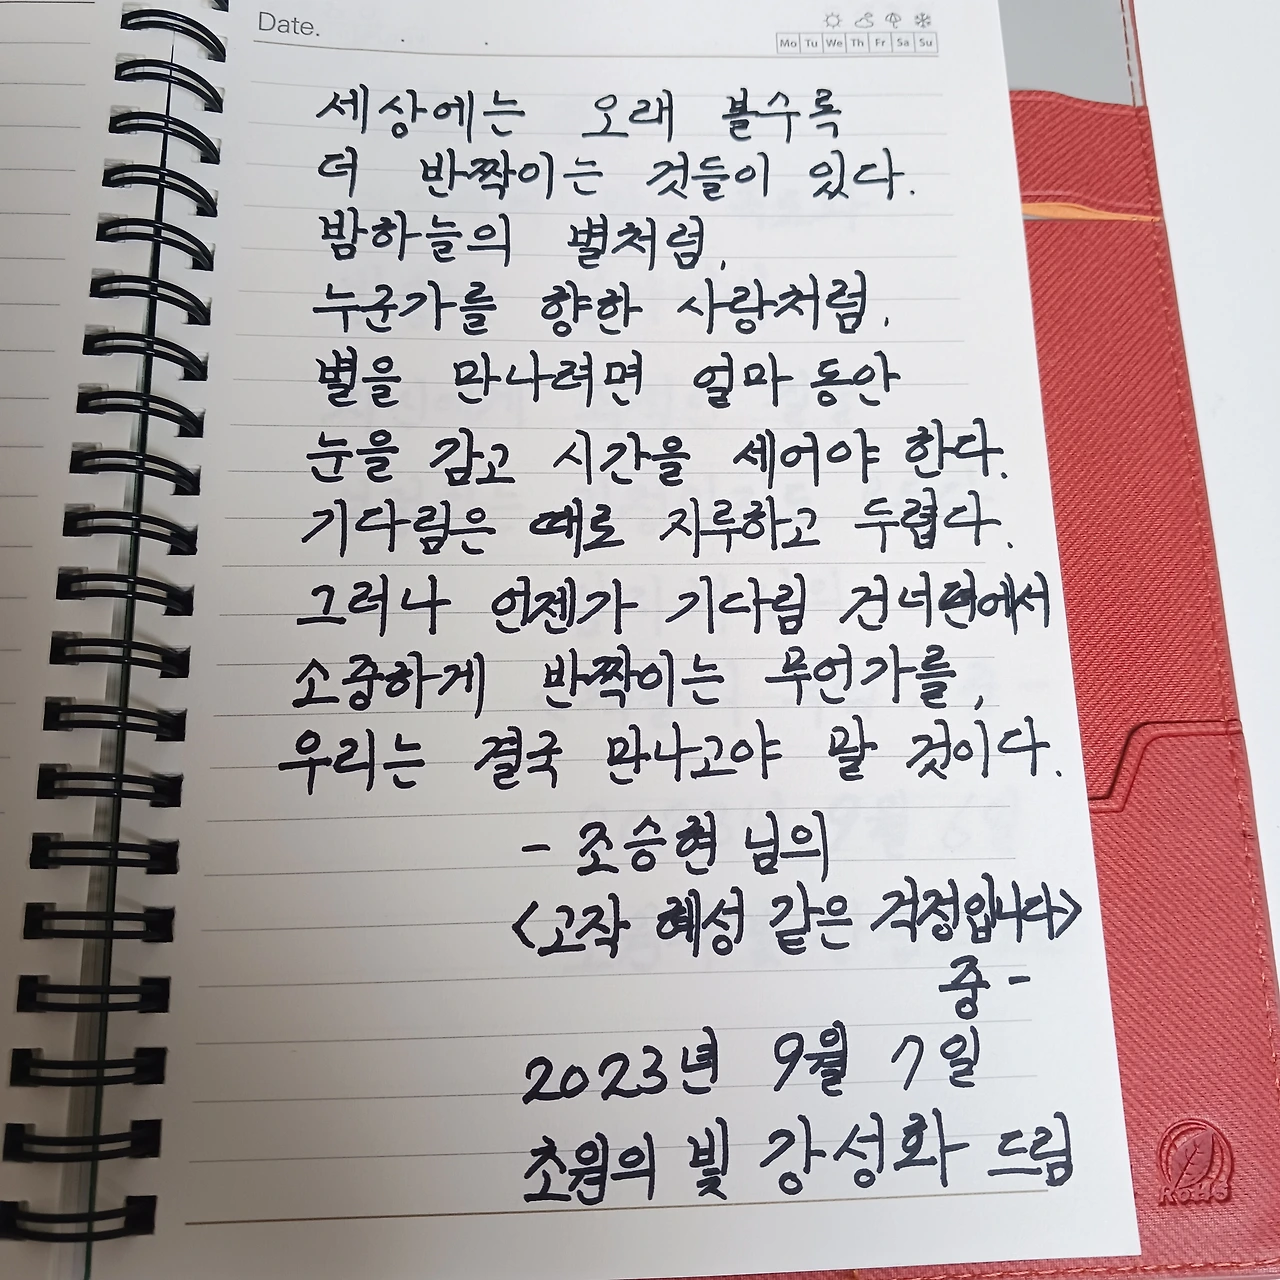 Date.
Mo Tu We Th Fr Sa Su
세상에는 오래 볼수록
더 반짝이는 것들이 있다.
밤하늘의 별처럼,
누군가를 향한 사랑처럼.
별을 만나려면 얼마 동안
눈을 감고 시간을 세어야 한다.
기다림은 때로 지루하고 두렵다.
그러나 언젠가 기다림 건너편에서
소중하게 반짝이는 무언가를,
우리는 결국 만나고야 말 것이다.
- 조승현 님의
<고작 혜성 같은 걱정입니다>
중-
2023년 9월 7일
초원의 빛 강성화 드림